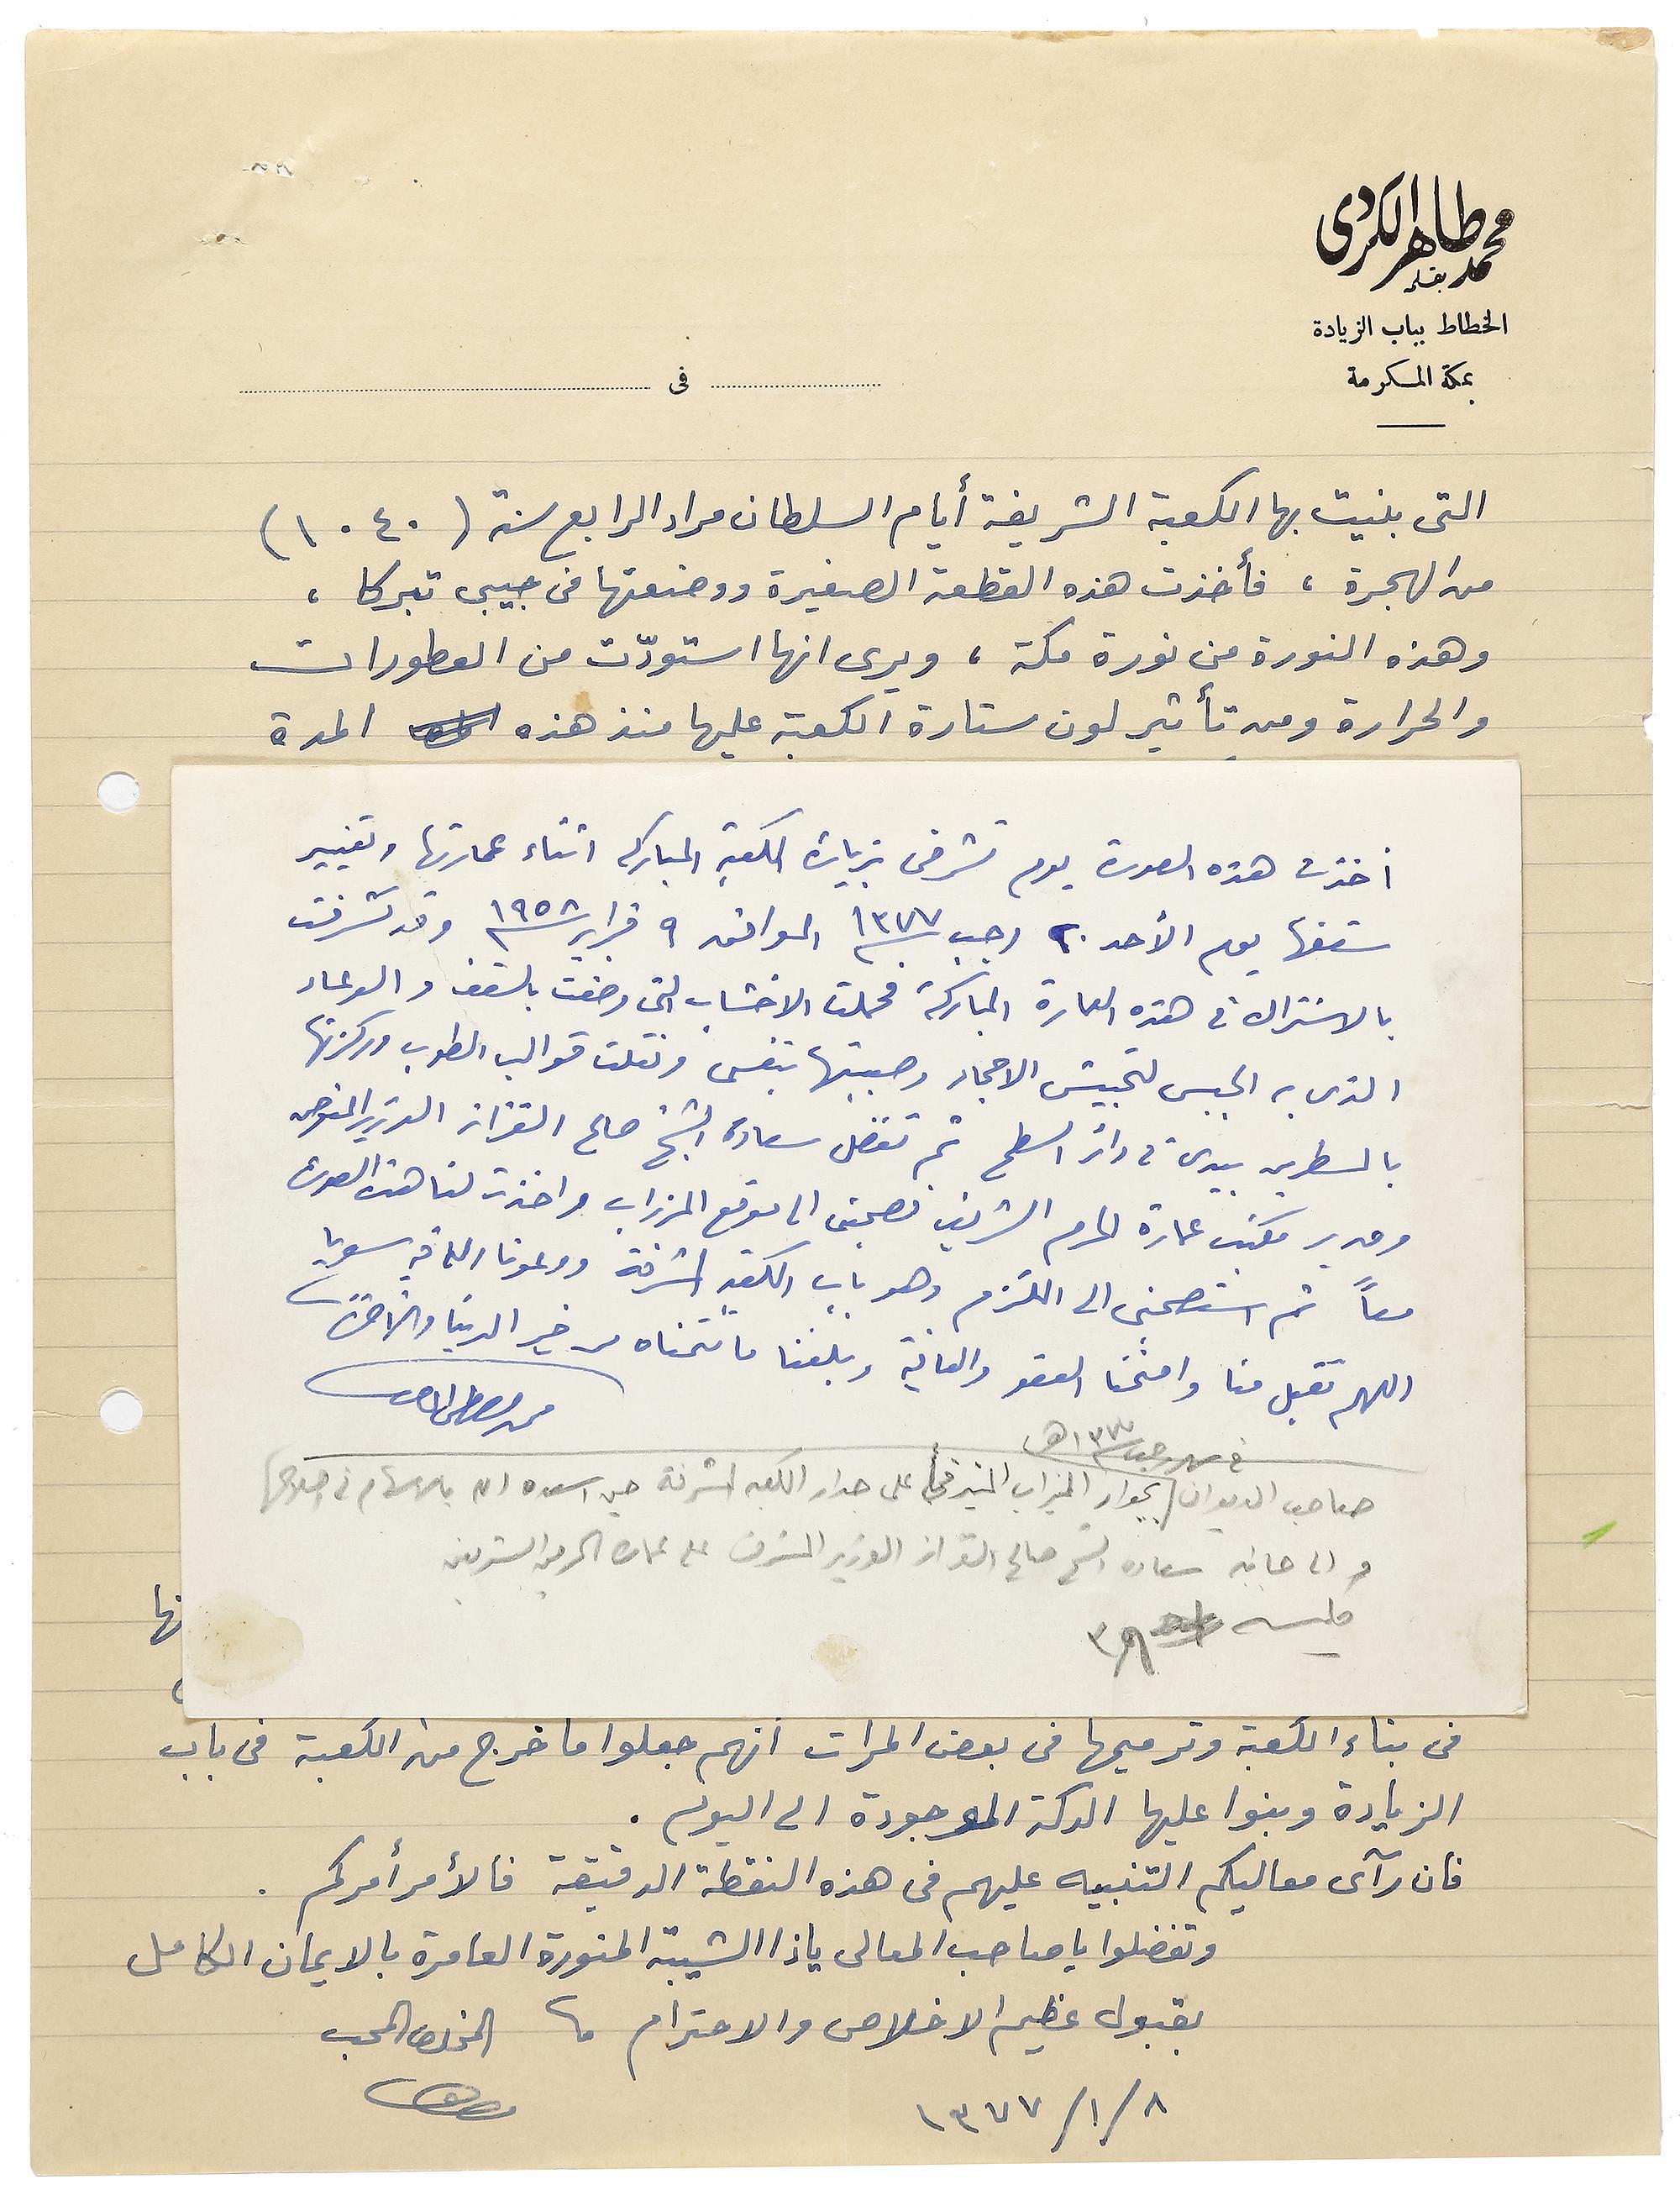 محمد طاهر الكردى
بقلم
الخطاط بباب الزيادة
بمكة المكرمة
فى
التى بنيت بها الكعبة الشريفة أيام السلطان مراد الرابع سنة (١٠٤٠)
من الهجرة ، فأخذت هذه القطعة الصغيرة ووضعتها فى جيبى تبركا ،
وهذه النورة من نورة مكة ، ويرى انها استودّت من العطورات
والحرارة ومن تأثير لون ستارة الكعبة عليها منذ هذه المدة
أخذت هذه الصورة يوم تشرفى بزيارة الكعبة المباركه اثناء عمارتها وتغيير
سقفها يوم الأحد ٢٠ رجب ١٣٧٧ الموافق ٩ فبراير ١٩٥٨ وقد تشرفت
بالاشتراك فى هذه العمارة المباركة فحملت الاخشاب التى وضعت بالسقف والوعاء
الذى به الجبس لتجبيش الاحجار وصببتها بنفسى ونقلت قوالب الطوب وركزتها
بالمسطرين بيدى فى دائر السطح ثم تفضل سعادة الشيخ صالح القزاز الوزير المفوض
ومدير مكتب عمارة الحرم الشريف فصحبنى الى موقع المزراب واخذت لنا هذه الصورة
معاً ثم استصحبنى الى الملتزم وهو باب الكعبه المشرفة ودعونا الله فيه سويا
اللهم تقبل منا وامنحنا العفو والعافية وبلغنا ما نتمناه من خير الدنيا والآخرة
فى شهر رجب ١٣٧٧هـ
صاحب الديوان بجوار الميزاب المنيف على جدار الكعبه المشرفة حين اسعده الله بالاسهام فى اصلاحها
والى جانبه سعادة الشيخ صالح القزاز الوزير المشرف على عمارة الحرمين الشريفين
نها
فى بناء الكعبة وترميمها فى بعض المرات انهم جعلوا ما خرج من الكعبة فى باب
الزيادة وبنوا عليها الدكة الموجودة الى اليوم .
فان رآى معاليكم التنبيه عليهم فى هذه النقطة الدقيقة فالأمر أمركم .
وتفضلوا يا صاحب المعالى ياذا الشيبة المنورة العامرة بالايمان الكامل
بقبول عظيم الاخلاص والاحترام
المخلص المحب
١٣٧٧/١/٨